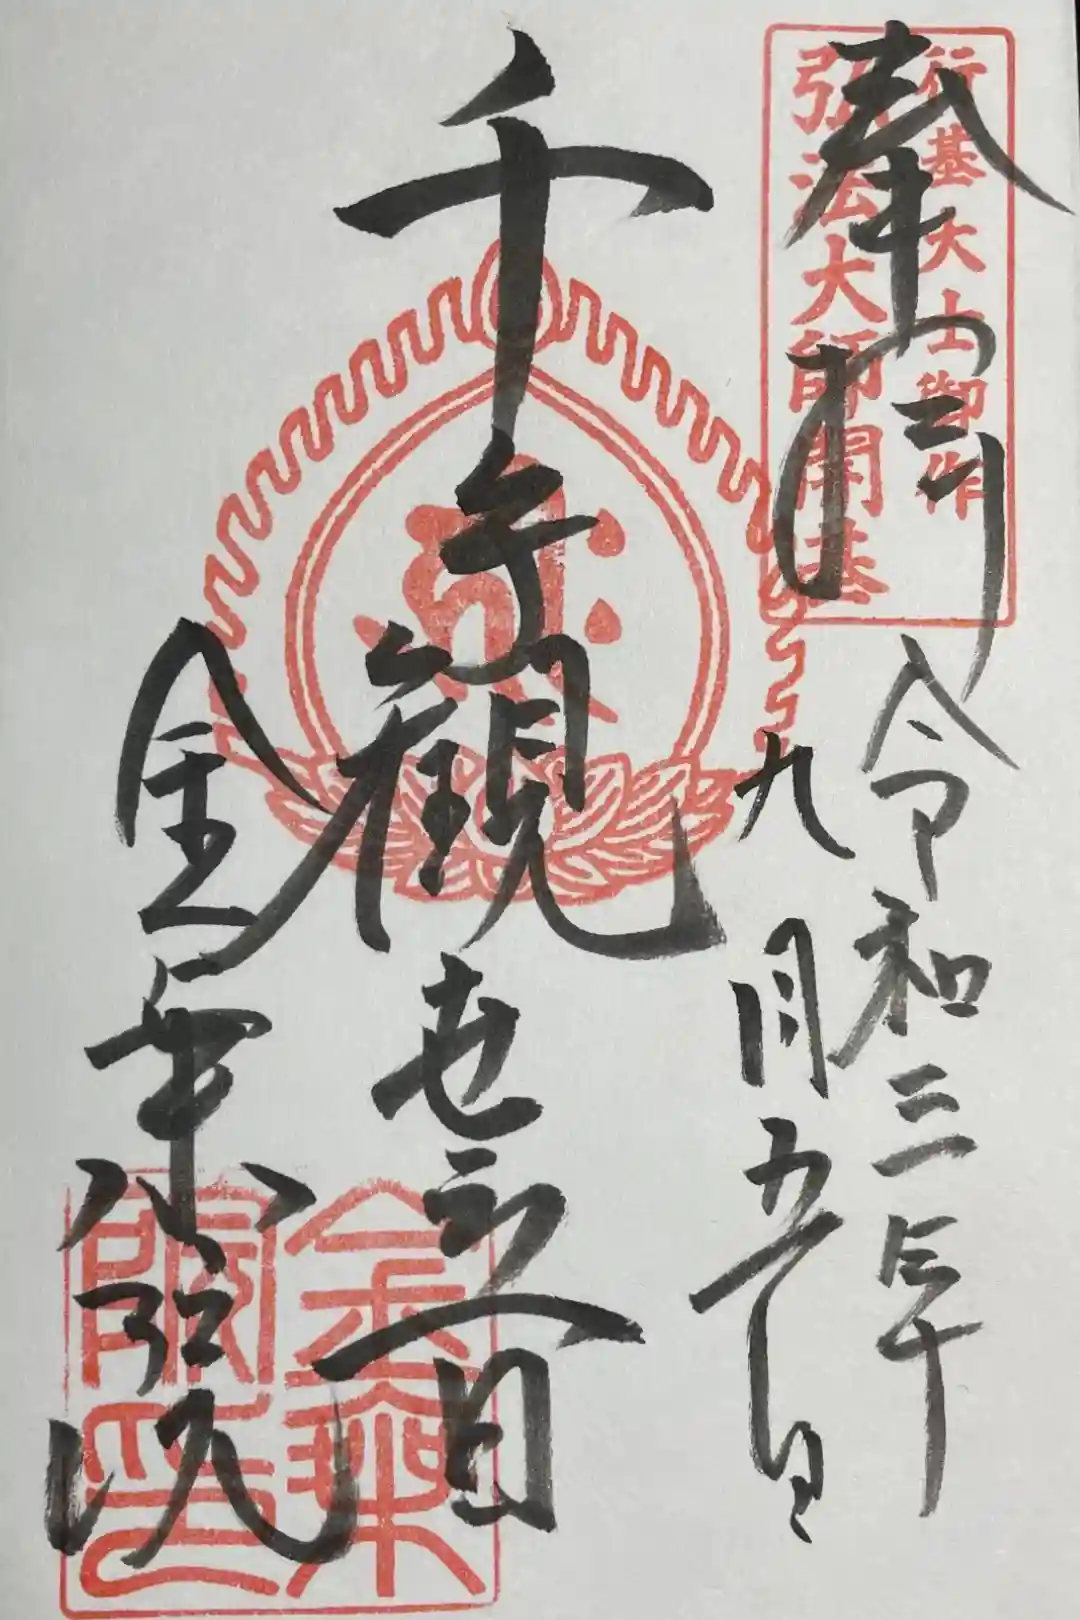 行基大士御作
弘法大師開基
奉拝
令和三年
九月五日
千手観世音
金乗院
金乗院印